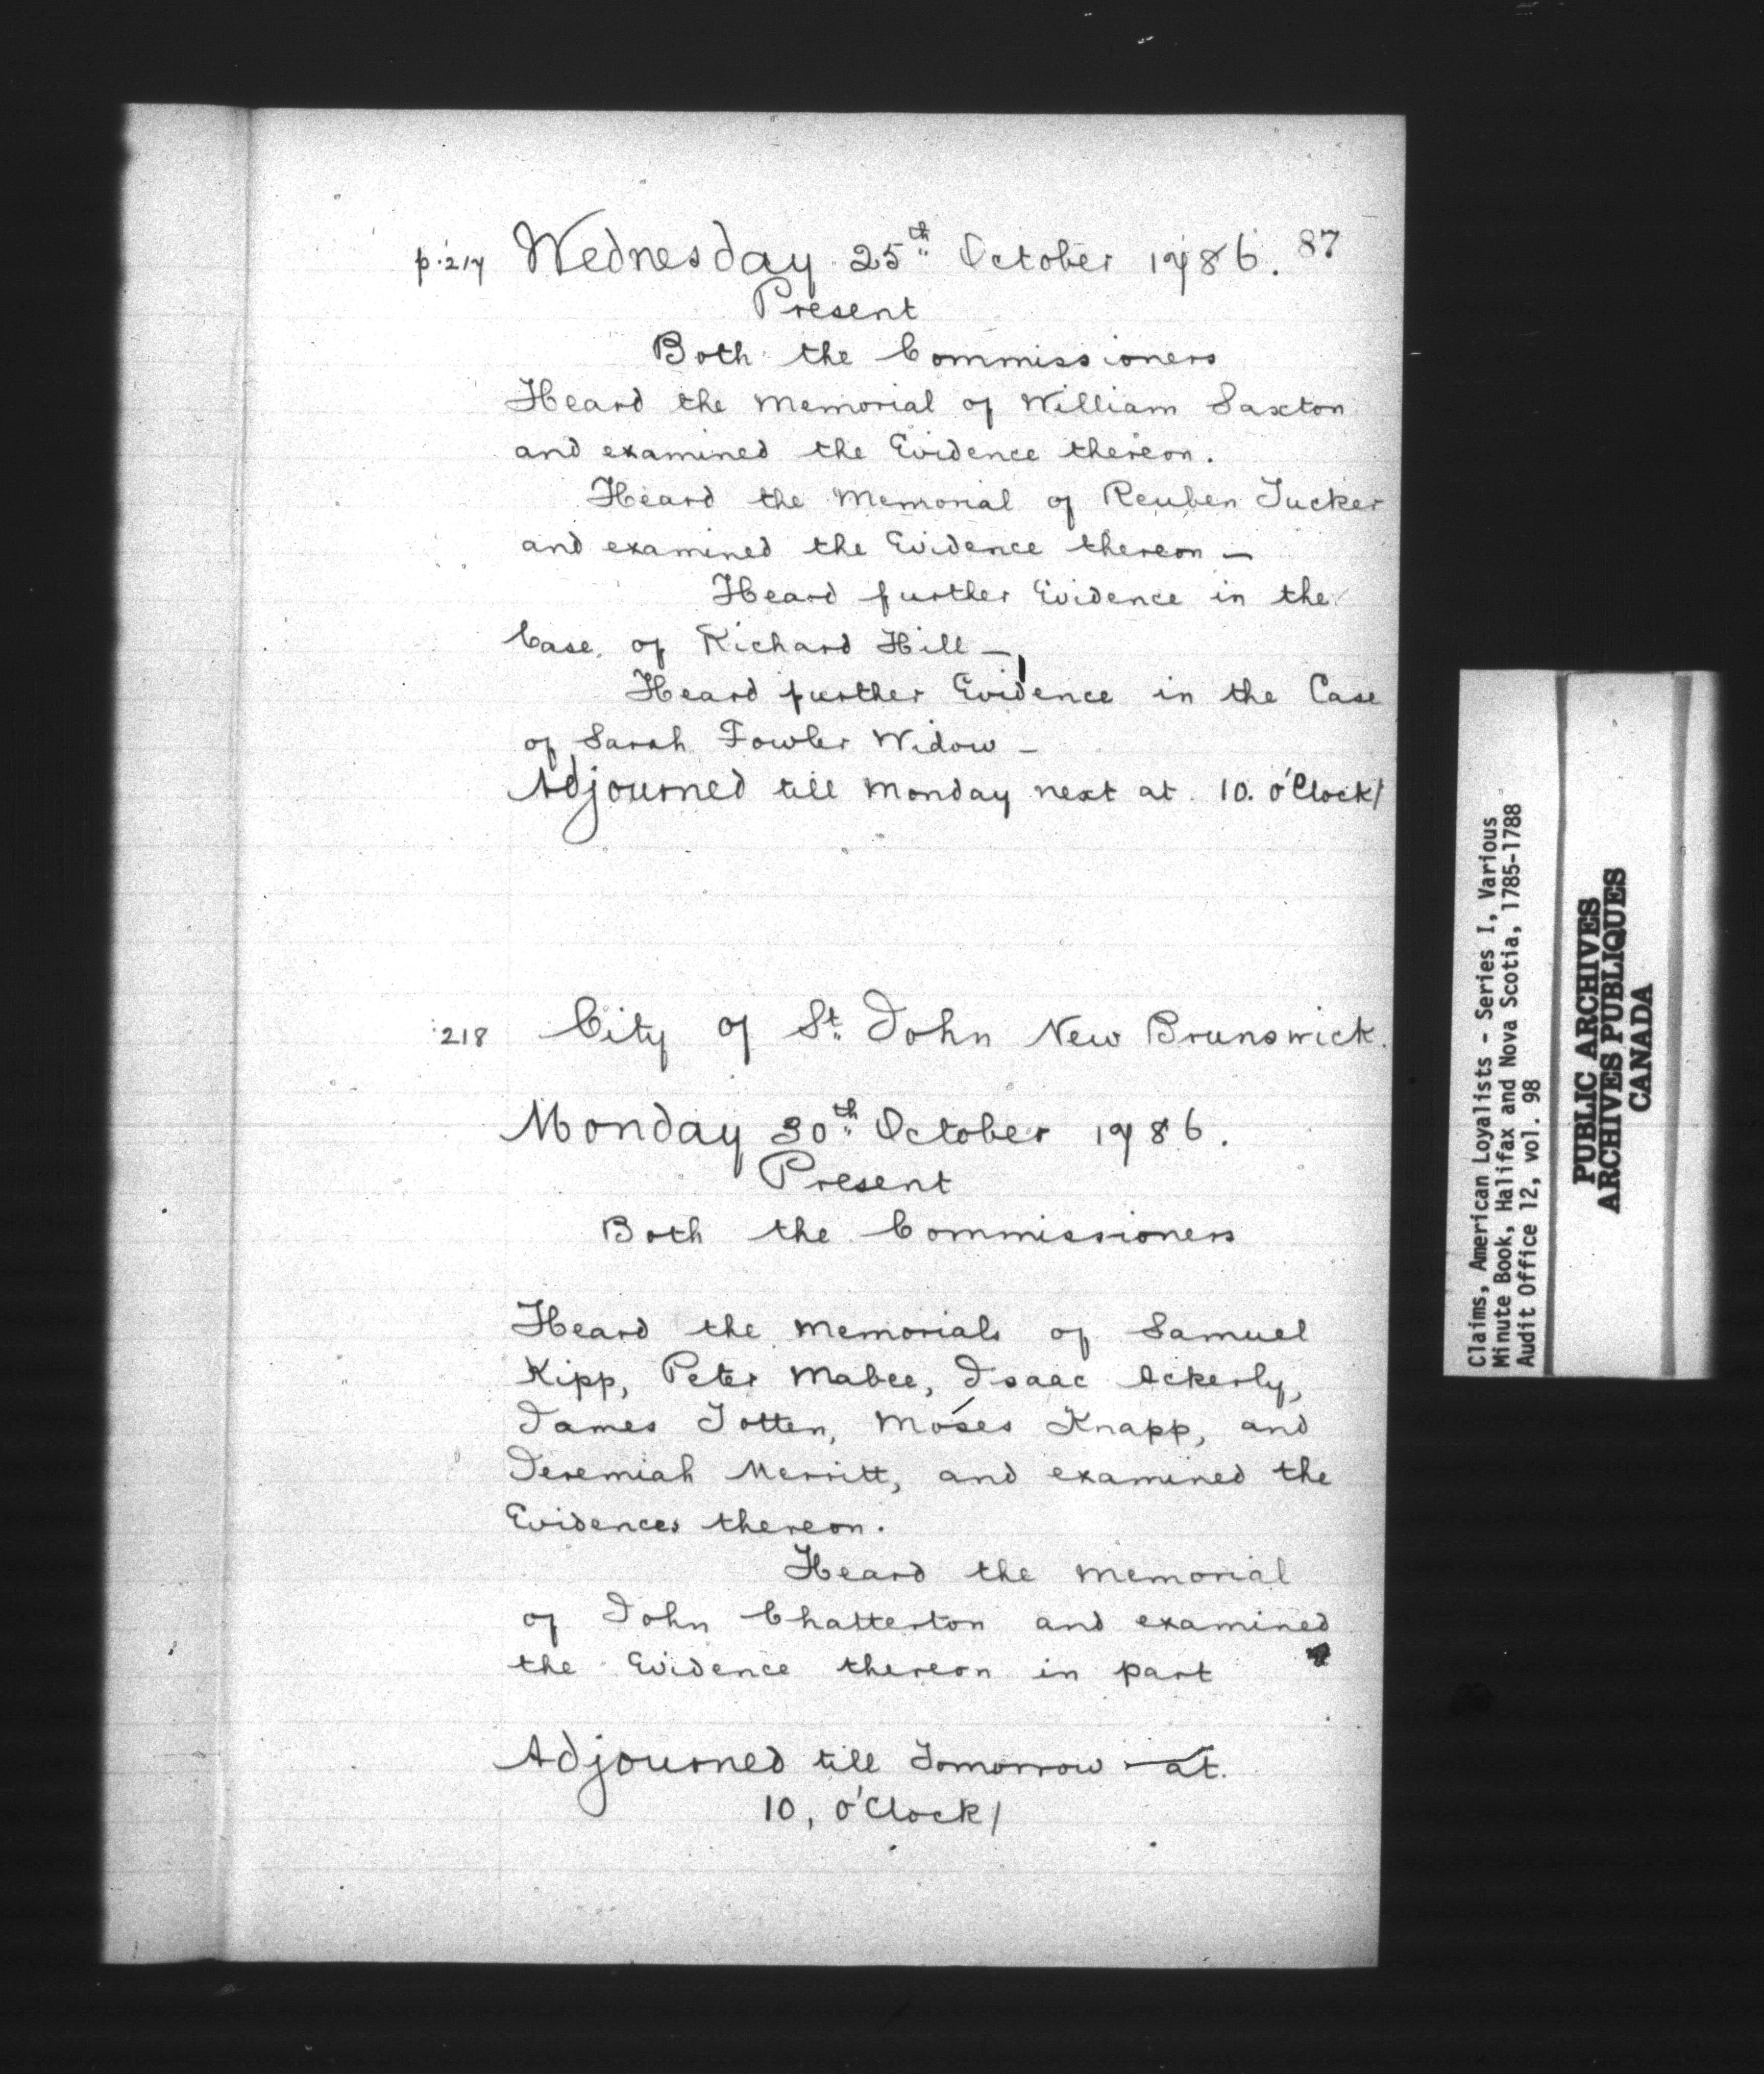 p. 217 Wednesday 25th October 1786. 87
Present
Both the Commissioners
Heard the Memorial of William Saxton
and examined the Evidence thereon.
Heard the Memorial of Reuben Tucker
and examined the Evidence thereon —
Heard further Evidence in the
Case of Richard Hill —
Heard further Evidence in the Case
of Sarah Fowler Widow —
Adjourned till Monday next at 10. o'Clock/
218 City of St. John New Brunswick.
Monday 30th October 1786.
Present
Both the Commissioners
Heard the Memorials of Samuel
Kipp, Peter Mabee, Isaac Ackerly,
James Totten, Moses Knapp, and
Jeremiah Merritt, and examined the
Evidences thereon.
Heard the Memorial
of John Chatterton and examined
the Evidence thereon in part
Adjourned till Tomorrow — at
10, o'Clock/
Claims, American Loyalists - Series I, Various
Minute Book, Halifax and Nova Scotia, 1785-1788
Audit Office 12, vol. 98
PUBLIC ARCHIVES
ARCHIVES PUBLIQUES
CANADA